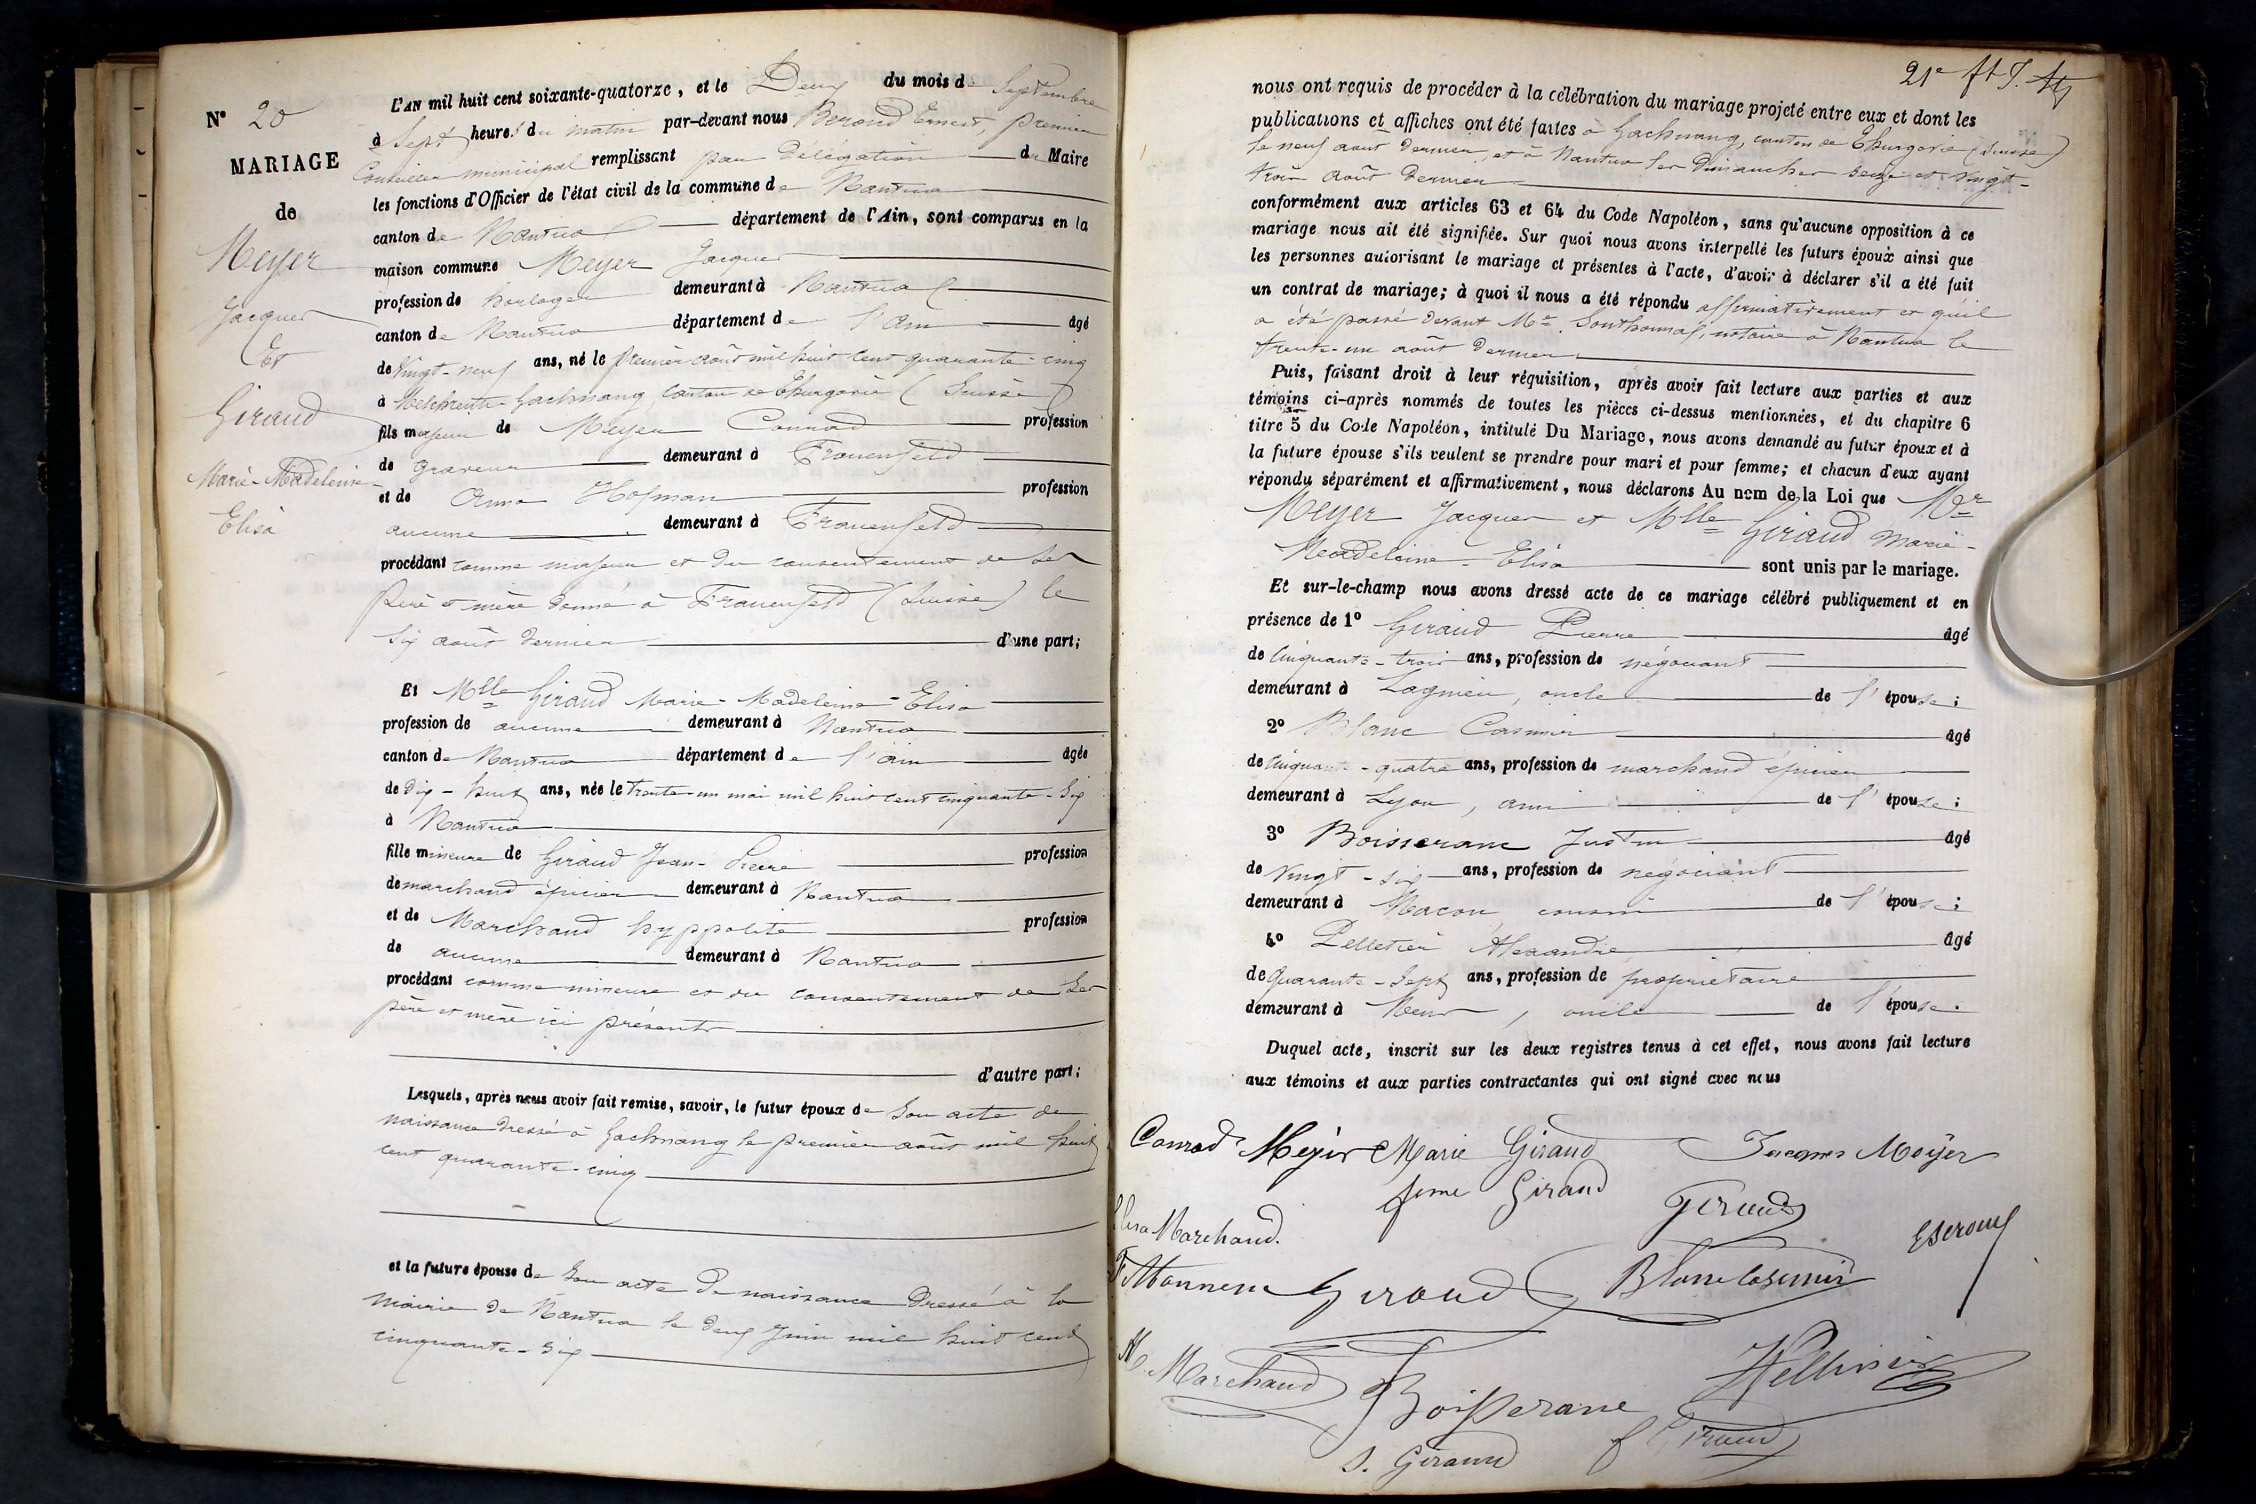 N° 20
MARIAGE
de
Meyer
Jacques
Et
Giraud
Marie-Madeleine-
Elisa
L'AN mil huit cent soixante-quatorze, et le Deux du mois de Septembre
à Sept heures du matin par-devant nous Beroud Ernest, premier
Conseiller municipal remplissant par délégation du Maire
les fonctions d'Officier de l'état civil de la commune de Nantua
canton de Nantua département de l'Ain, sont comparus en la
maison commune Meyer Jacques
profession de horloger demeurant à Nantua
canton de Nantua département de l'Ain âgé
de Vingt-neuf ans, né le premier août mil huit cent quarante-cinq
à Gachnang Canton de Thurgovie (Suisse)
fils majeur de Meyer Conrad profession
de graveur demeurant à Frauenfeld
et de Anna Hofman profession
aucune demeurant à Frauenfeld
procédant comme majeur et du consentement de ses
père et mère donné à Frauenfeld (Suisse) le
six août dernier d'une part;
Et Mlle Giraud Marie-Madeleine-Elisa
profession de aucune demeurant à Nantua
canton de Nantua département de l'Ain âgée
de dix-huit ans, née le trente-un mai mil huit cent cinquante-six
à Nantua
fille mineure de Giraud Jean-Pierre profession
de marchand épicier demeurant à Nantua
et de Marchand hyppolite profession
de aucune demeurant à Nantua
procédant comme mineure et du consentement de ses
père et mère ici présents
d'autre part;
Lesquels, après nous avoir fait remise, savoir, le futur époux de son acte de
naissance dressé à Gachnang le premier août mil huit
cent quarante-cinq
et la future épouse de son acte de naissance dressé à la
mairie de Nantua le deux Juin mil huit cent
cinquante-six
21e
nous ont requis de procéder à la célébration du mariage projeté entre eux et dont les
publications et affiches ont été faites à Gachnang, canton de Thurgovie (Suisse)
le neuf août dernier, et à Nantua les Dimanches seize et vingt-
trois août dernier
conformément aux articles 63 et 64 du Code Napoléon, sans qu'aucune opposition à ce
mariage nous ait été signifiée. Sur quoi nous avons interpellé les futurs époux ainsi que
les personnes autorisant le mariage et présentes à l'acte, d'avoir à déclarer s'il a été fait
un contrat de mariage; à quoi il nous a été répondu affirmativement et qu'il
a été passé devant Me Southonnax, notaire à Nantua le
trente-un août dernier
Puis, faisant droit à leur réquisition, après avoir fait lecture aux parties et aux
témoins ci-après nommés de toutes les pièces ci-dessus mentionnées, et du chapitre 6
titre 5 du Code Napoléon, intitulé Du Mariage, nous avons demandé au futur époux et à
la future épouse s'ils veulent se prendre pour mari et pour femme; et chacun d'eux ayant
répondu séparément et affirmativement, nous déclarons Au nom de la Loi que Mer
Meyer Jacques et Mlle Giraud Marie-
Madeleine-Elisa sont unis par le mariage.
Et sur-le-champ nous avons dressé acte de ce mariage célébré publiquement et en
présence de 1° Giraud Pierre âgé
de Cinquante-trois ans, profession de négociant
demeurant à Lagnieu, oncle de l'épouse;
2° Blanc Casimir âgé
de Cinquante-quatre ans, profession de marchand épicier
demeurant à Lyon, ami de l'épouse;
3° Boisserane Justin âgé
de Vingt-six ans, profession de négociant
demeurant à Macon, cousin de l'épouse;
4° Pelletier Alexandre âgé
de Quarante-Sept ans, profession de propriétaire
demeurant à oncle de l'épouse.
Duquel acte, inscrit sur les deux registres tenus à cet effet, nous avons fait lecture
aux témoins et aux parties contractantes qui ont signé avec nous
Conrad Meyer Marie Giraud Jacques Meÿer
feme Giraud Giraud
Elisa Marchand. EBeroud
Giraud Blanc Casimir
H. Marchand Boisserane Pelletier
S. Giraud Giraud